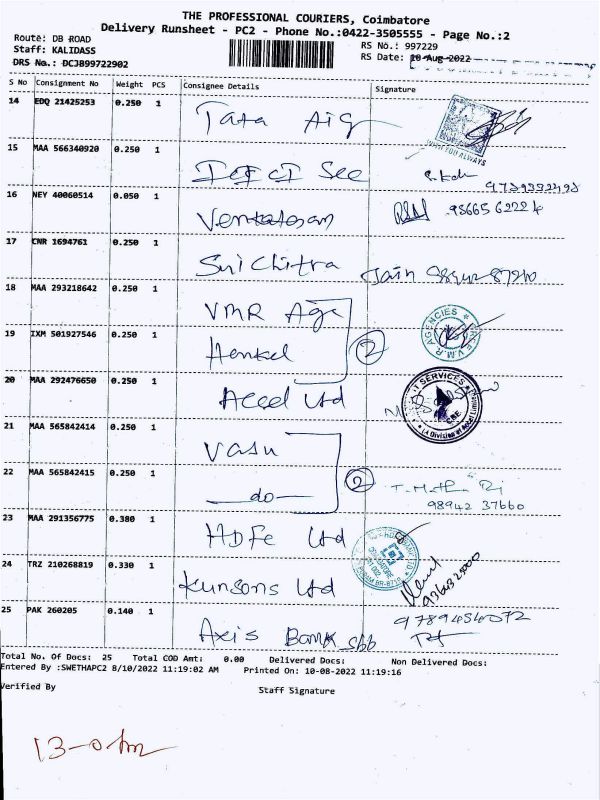 THE PROFESSIONAL COURIERS, Coimbatore
Delivery Runsheet - PC2 - Phone No.:0422-3505555 - Page No.:2
Route: DB ROAD
RS No.: 997229
Staff: KALIDASS
RS Date: 10-Aug-2022
DRS No.: DCJ899722902
S No Consignment No Weight PCS Consignee Details Signature
14 EDQ 21425253 0.250 1 Tata Aig
15 MAA 566340920 0.250 1
16 NEY 40060514 0.050 1 93665 62224
17 CNR 1694761 0.250 1 Sui Chitra Jain
18 MAA 293218642 0.250 1 VMR Age
19 IXM 501927546 0.250 1 Henkel 2
20 MAA 292476650 0.250 1 Accel Ltd
21 MAA 565842414 0.250 1 Vasu
22 MAA 565842415 0.250 1 —do— 2
98942 37660
23 MAA 291356775 0.380 1 HDFC Ltd
24 TRZ 210268819 0.330 1 Kunsons Ltd
25 PAK 260205 0.140 1 Axis Bank Sbb 9789454072
Total No. Of Docs: 25 Total COD Amt: 0.00 Delivered Docs: Non Delivered Docs:
Entered By :SWETHAPC2 8/10/2022 11:19:02 AM Printed On: 10-08-2022 11:19:16
Verified By Staff Signature